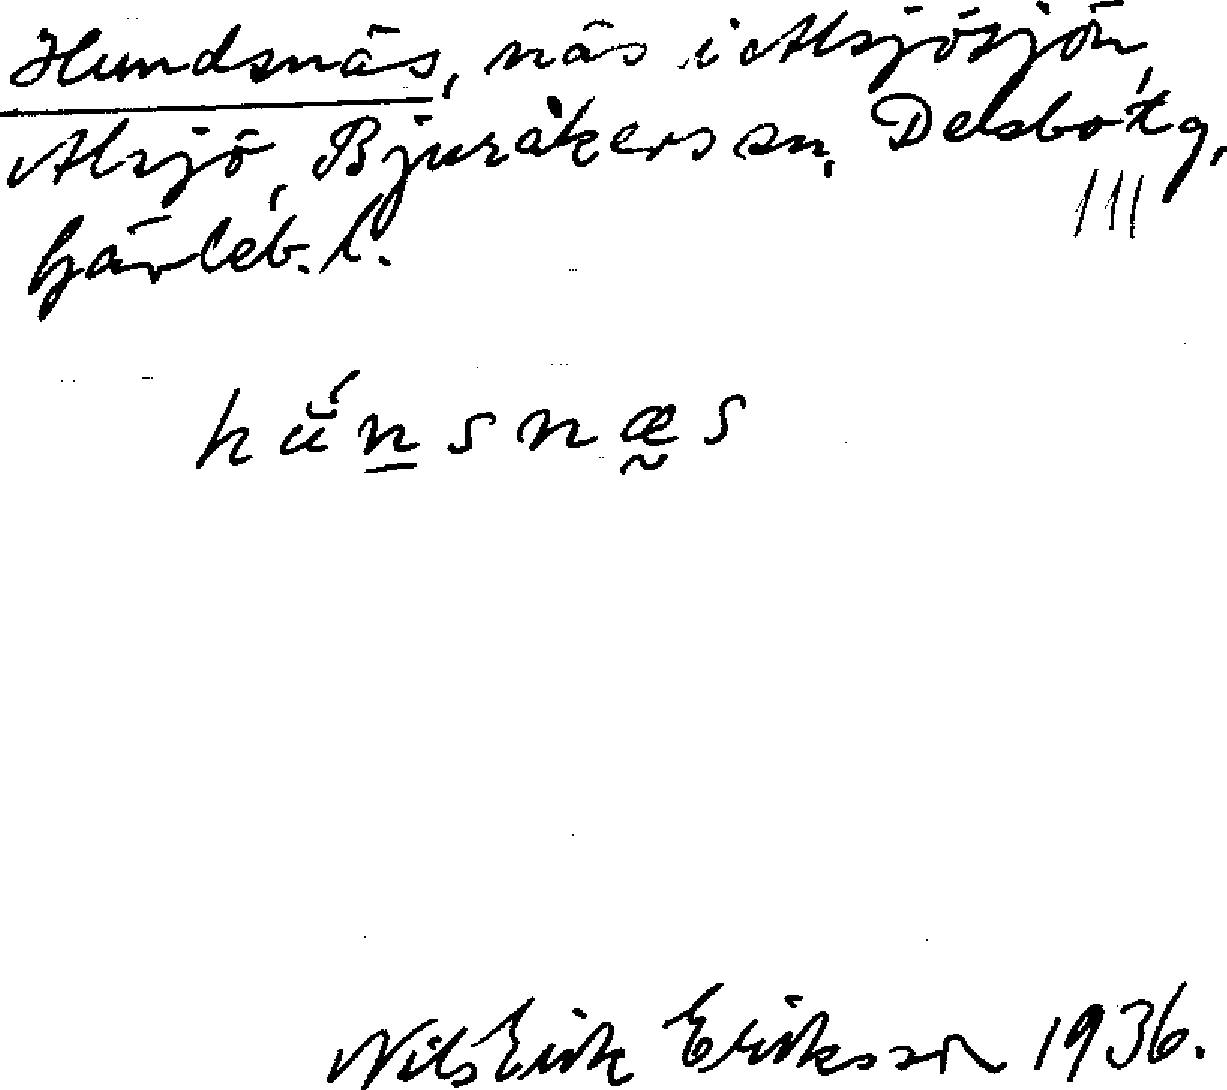 Hundsnäs, näs i Alsjösjön,
Alsjö, Bjuråkers sn, Delsbo tg,
Gävleb. l.
III
hŭ́nsnæs
Nils Erik Eriksson 1936.